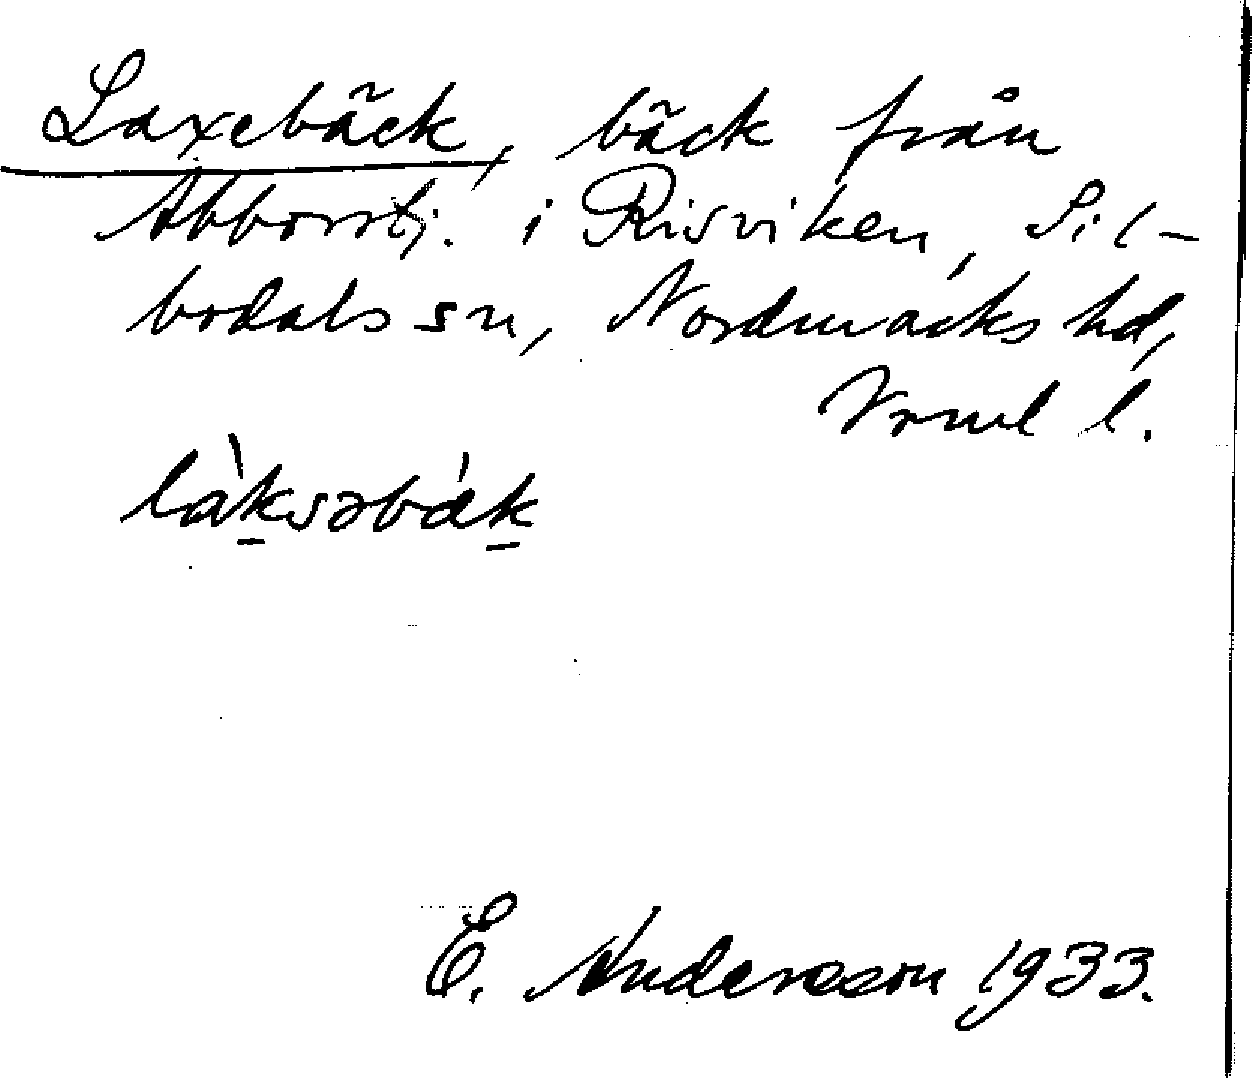 Laxebäck, bäck från
Abborrtj. i Risviken, Sil-
bodals sn, Nordmarks hd,
Vrml l.
làksəbǽk
E. Andersson 1933.